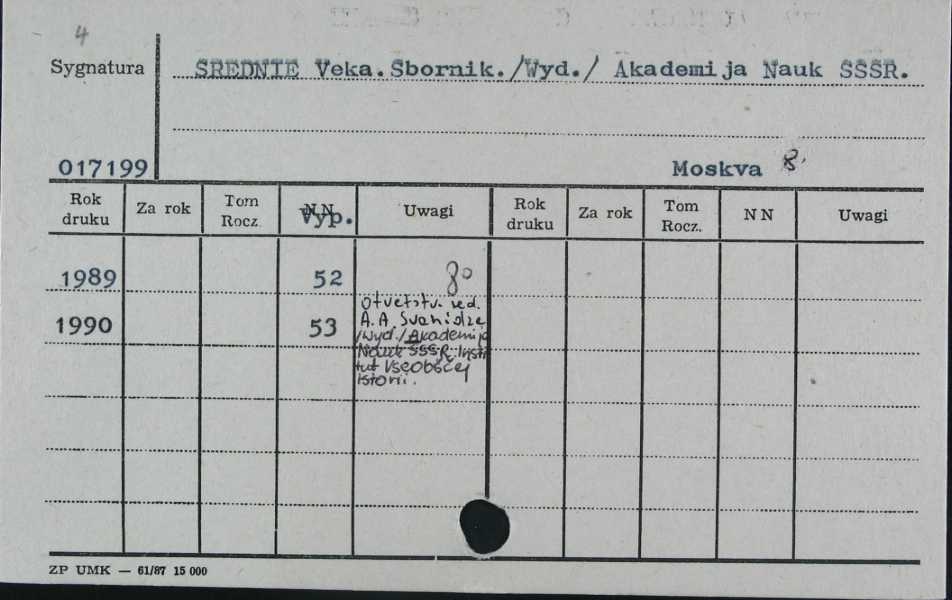 4
Sygnatura SREDNIE Veka. Sbornik. /Wyd./ Akademija Nauk SSSR.
017199 Moskva 8°
Rok druku Za rok Tom Rocz. NN Vyp. Uwagi Rok druku Za rok Tom Rocz. NN Uwagi
1989 52 8°
1990 53 Otvetstv. red.
A.A. Svanidze
/Wyd./ Akademija
Nauk SSSR. Insti
tut Vseobščej
Istorii.
ZP UMK — 61/87 15 000